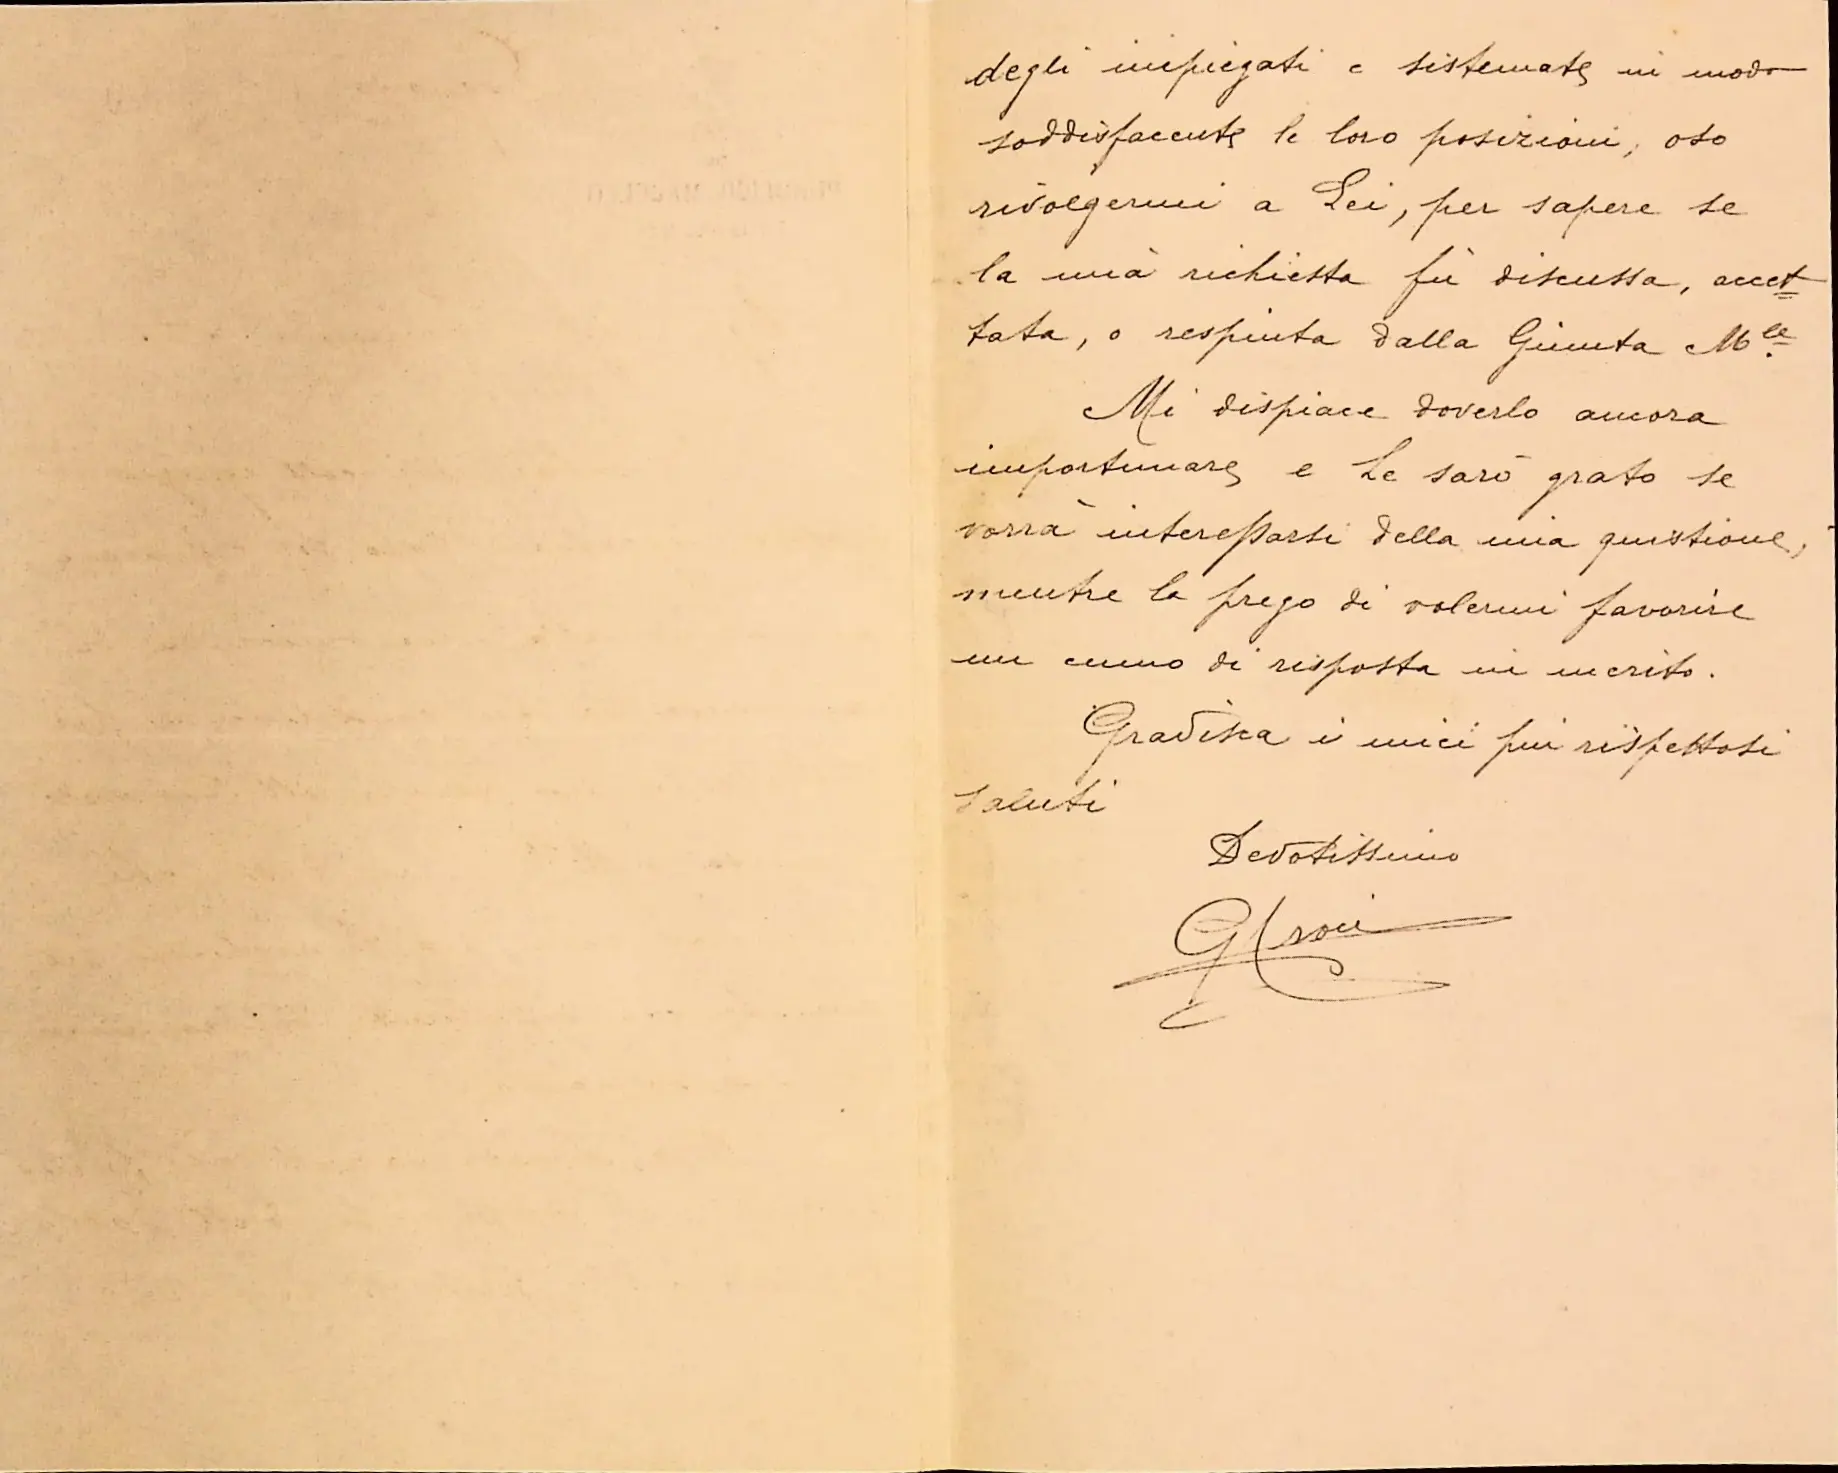 degli impiegati e sistemate in modo
soddisfacente le loro posizioni, oso
rivolgermi a Lei, per sapere se
la mia richiesta fù discussa, accet=
tata, o respinta dalla Giunta Mle.
Mi dispiace doverlo ancora
importunare e Le sarò grato se
vorrà interessarsi della mia quistione,
mentre la prego di volermi favorire
un cenno di risposta in merito.
Gradisca i miei più rispettosi
saluti
Devotissimo